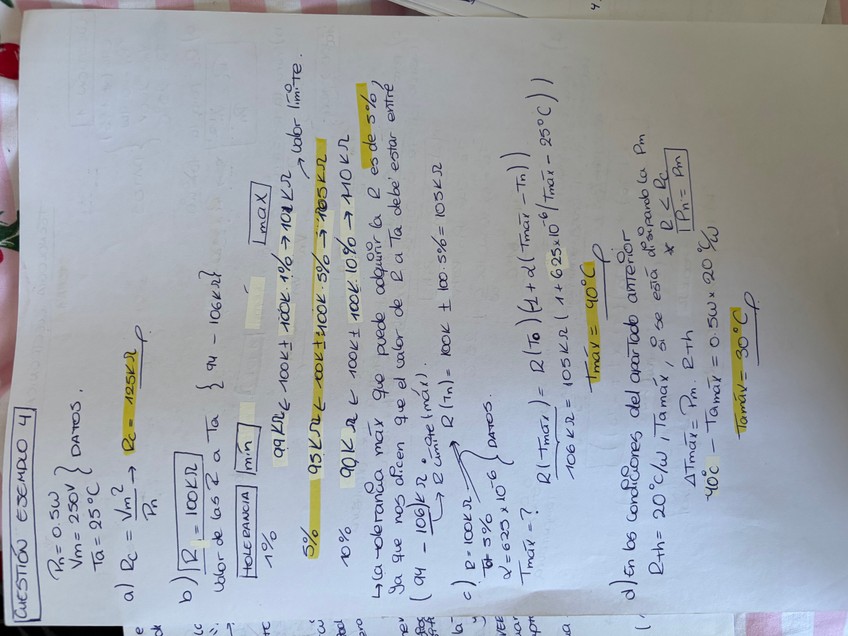 CUESTIÓN EJEMPLO 4
Pn = 0.5W
Vm = 250V } DATOS.
Ta = 25°C
a) Rc = Vm² / Pn → Rc = 125KΩ
b) R = 100KΩ
Valor de las R a Ta { 94 - 106KΩ }
TOLERANCIA mín máx
1% 99KΩ ← 100K ± 100K·1% → 101KΩ
5% 95KΩ ← 100K ± 100K·5% → 105KΩ → Valor límite.
10% 90KΩ ← 100K ± 100K·10% → 110KΩ
↳ La tolerancia máx que puede adquirir la R es de 5%,
ya que nos dicen que el valor de R a Ta debe estar entre
(94 - 106)KΩ.
↳ R límite (máx).
c) R = 100KΩ → R(Tn) = 100K ± 100·5% = 105KΩ
5%
α = 625 x 10⁻⁶ } DATOS.
Tmáx = ?
R(Tmáx) = R(To) (1 + α (Tmáx - Tn))
106KΩ = 105KΩ (1 + 625x10⁻⁶ (Tmáx - 25°C))
Tmáx = 40°C
d) En las condiciones del apartado anterior
Rth = 20°C/W, Tamáx, si se está disipando la Pm
* R < Rc
Pn = Pm
ΔTmáx = Pm · Rth
40°C - Tamáx = 0.5W x 20°C/W
Tamáx = 30°C